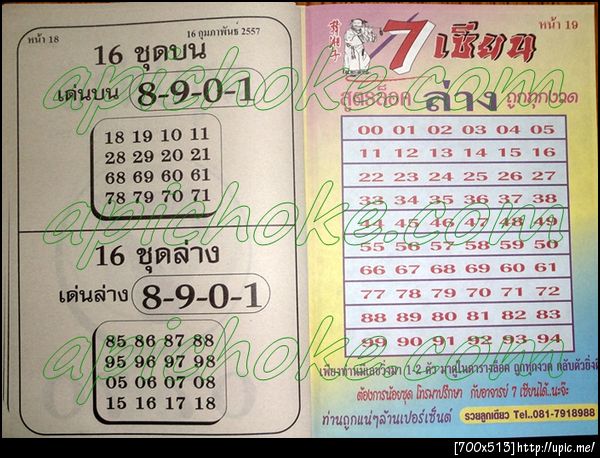 หน้า 18
16 กุมภาพันธ์ 2557
16 ชุดบน
เด่นบน 8-9-0-1
18 19 10 11
28 29 20 21
68 69 60 61
78 79 70 71
16 ชุดล่าง
เด่นล่าง 8-9-0-1
85 86 87 88
95 96 97 98
05 06 07 08
15 16 17 18
หน้า 19
7 เซียน
สูตรล็อค ล่าง ถูกทุกงวด
00 01 02 03 04 05
11 12 13 14 15 16
22 23 24 25 26 27
33 34 35 36 37 38
44 45 46 47 48 49
55 56 57 58 59 50
66 67 68 69 60 61
77 78 79 70 71 72
88 89 80 81 82 83
99 90 91 92 93 94
เพียงท่านมีเลขวิ่งมา 1-2 ตัว มาดูในตารางล็อค ถูกทุกงวด กลับตัวยิ่งดี
ต้องการน้อยชุด โทรมาปรึกษา กับอาจารย์ 7 เซียนได้..นะจ๊ะ
ท่านถูกแน่ๆล้านเปอร์เซ็นต์ รวยลูกเดียว Tel..081-7918988
apichoke.com
apichoke.com
apichoke.com
[700x513]http://upic.me/